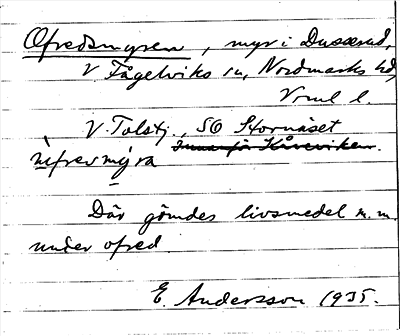 Ofredsmyren, myr i Dusserud,
V. Fågelviks sn, Nordmarks hd,
Vrml l.
V. Tolstj., SO Stornäset
Innanför Kåreviken.
ùfresmýra
Där gömdes livsmedel m.m.
under ofred
E. Andersson 1935.